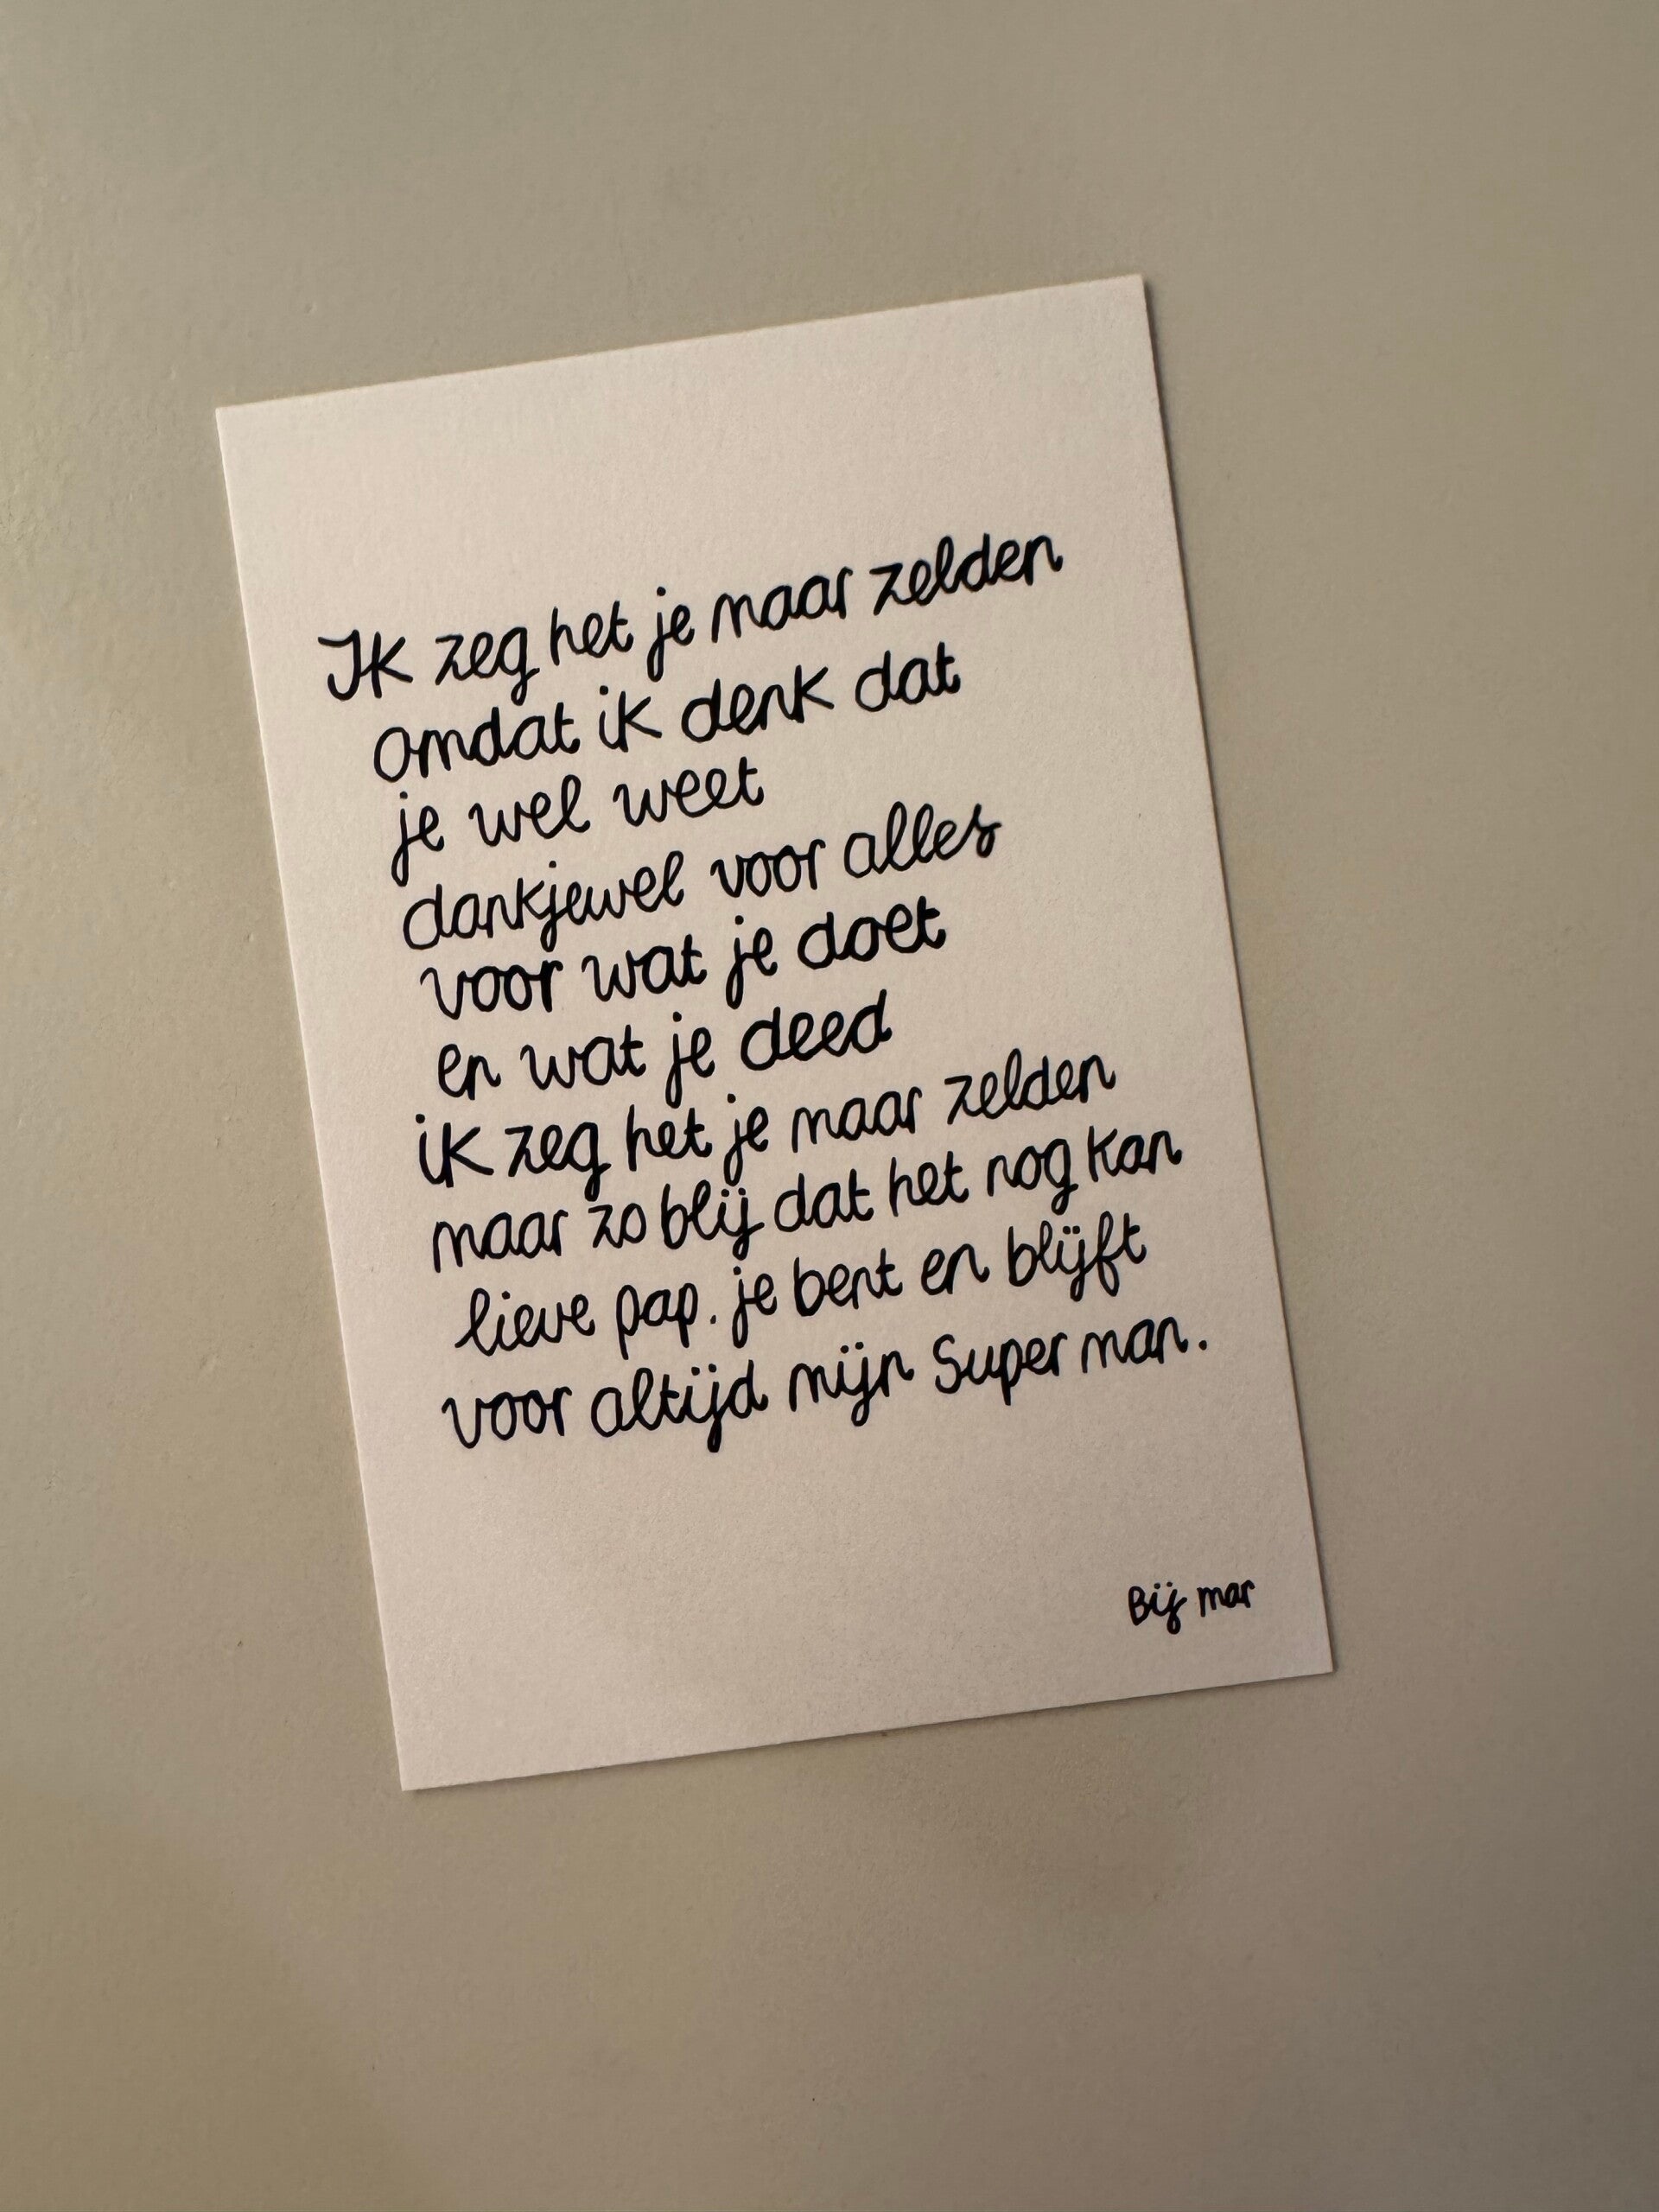 Ik zeg het je maar zelden
omdat ik denk dat
je wel weet
dankjewel voor alles
voor wat je doet
en wat je deed
ik zeg het je maar zelden
maar zo blij dat het nog kan
lieve pap. je bent en blijft
voor altijd mijn Super man.
Bij mar